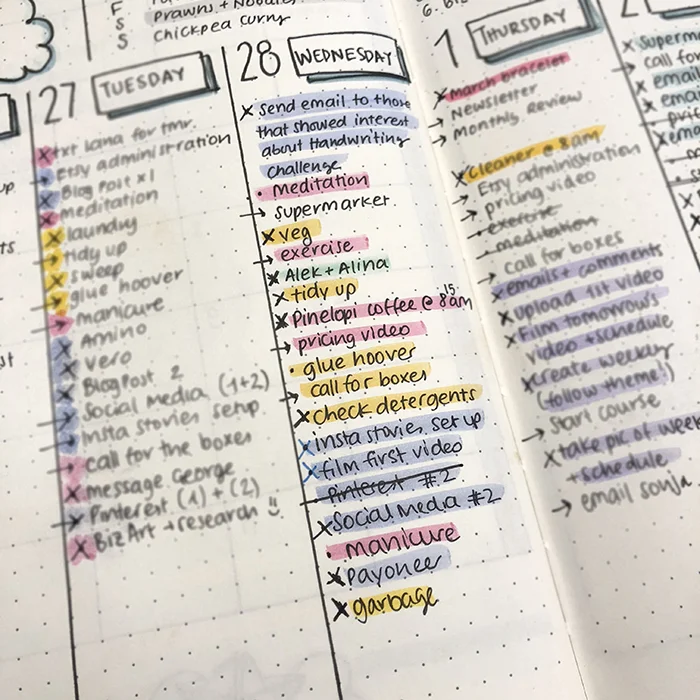 F
S
S
Prawns + Noodles
Chickpea curry
27 TUESDAY
x txt Lana for tmr.
→ etsy administration
x Blog Post x1
x meditation
x laundry
→ tidy up
x sweep
x glue hoover
→ manicure
x Amino
x vero
x Blog Post 2
→ Social Media (1+2)
→ insta stories setup
→ call for the boxes
x message George
→ Pinterest (1) + (2)
x Biz Art + research
28 WEDNESDAY
x send email to those
that showed interest
about Handwriting
challenge
• meditation
→ supermarket
x veg
→ exercise
x Alek + Alina
x tidy up
x Pinelopi coffee @ 8:15am
→ pricing video
• glue hoover
→ call for boxes
x check detergents
x insta stories set up
x film first video
Pinterest #2
x Social Media #2
• manicure
x payoneer
x garbage
1 THURSDAY
x march bracelet
→ Newsletter
→ Monthly Review
x cleaner @ 8am
→ Etsy administration
→ pricing video
• exercise
• meditation
→ call for boxes
x emails + comments
x upload 1st video
x Film tomorrow's
video + schedule
x create weekly
(follow theme!)
→ start course
x take pic of week
+ schedule
→ email sonja
x
call for
x
x
x